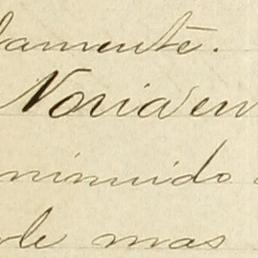 damente.
Noria en
minuido
le mas